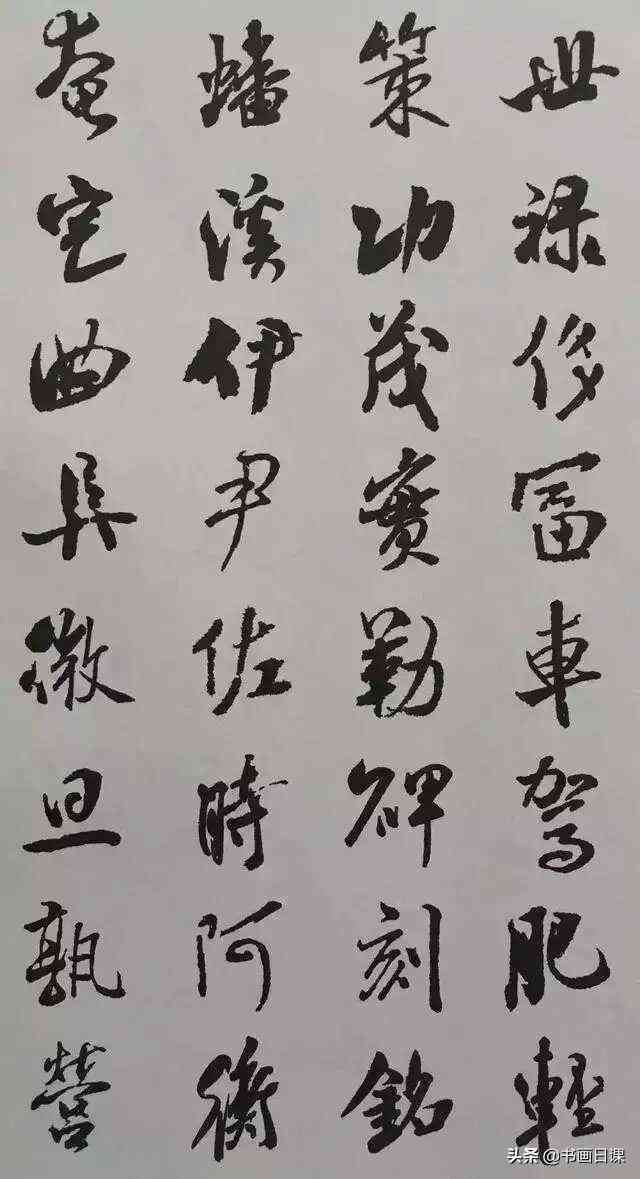 世祿侈富車駕肥輕
策功茂實勒碑刻銘
磻溪伊尹佐時阿衡
奄宅曲阜微旦孰營
头条 @书画日课